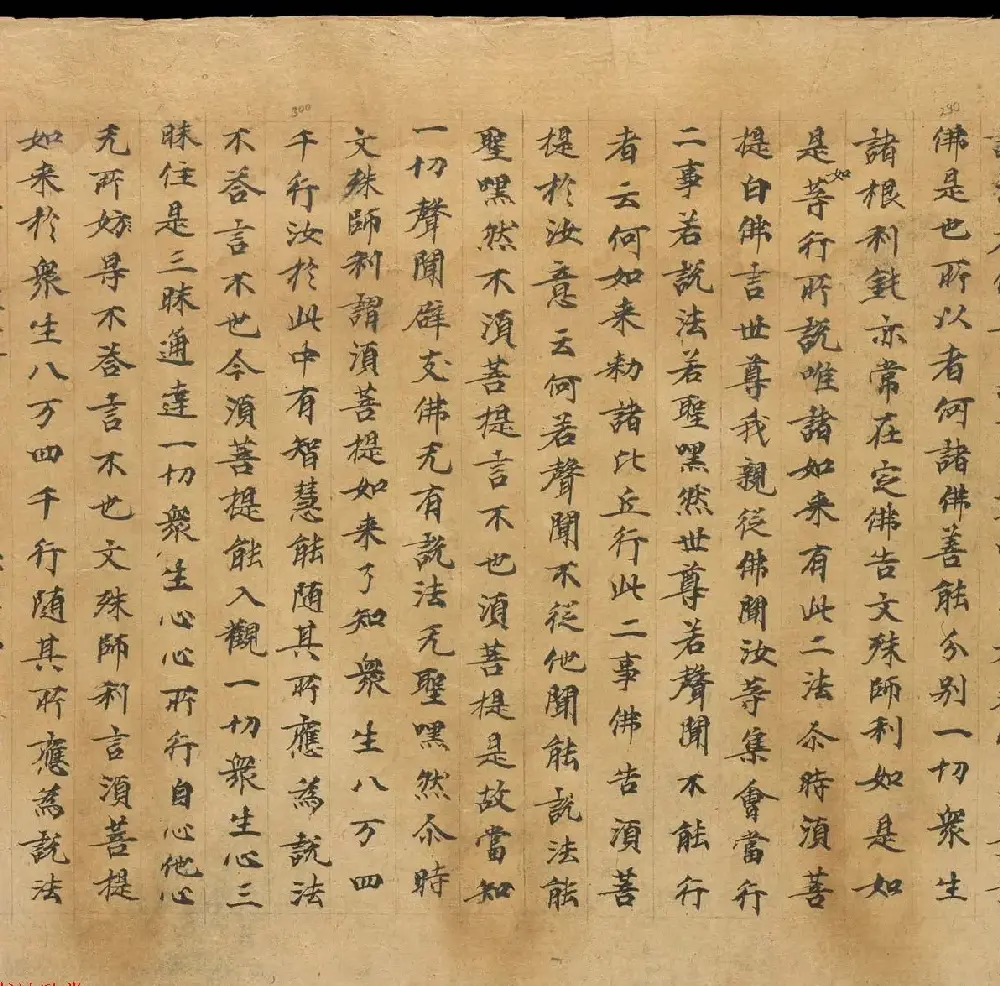 佛是也所以者何諸佛善能分別一切衆生
諸根利鈍亦常在定佛告文殊師利如是如
是如等行所說唯諸如来有此二法尒時湏菩
提白佛言世尊我親從佛聞汝等集會當行
二事若說法若聖嘿然世尊若聲聞不能行
者云何如来勑諸比丘行此二事佛告湏菩
提於汝意云何若聲聞不從他聞能說法能
聖嘿然不湏菩提言不也湏菩提是故當知
一切聲聞辟支佛无有說法无聖嘿然尒時
文殊師利謂湏菩提如来了知衆生八万四
千行汝於此中有智慧能随其所應為說法
不荅言不也今湏菩提能入觀一切衆生心三
昧住是三昧通達一切衆生心心所行自心他心
无所妨㝵不荅言不也文殊師利言湏菩提
如来於衆生八万四千行随其所應為說法
300
290